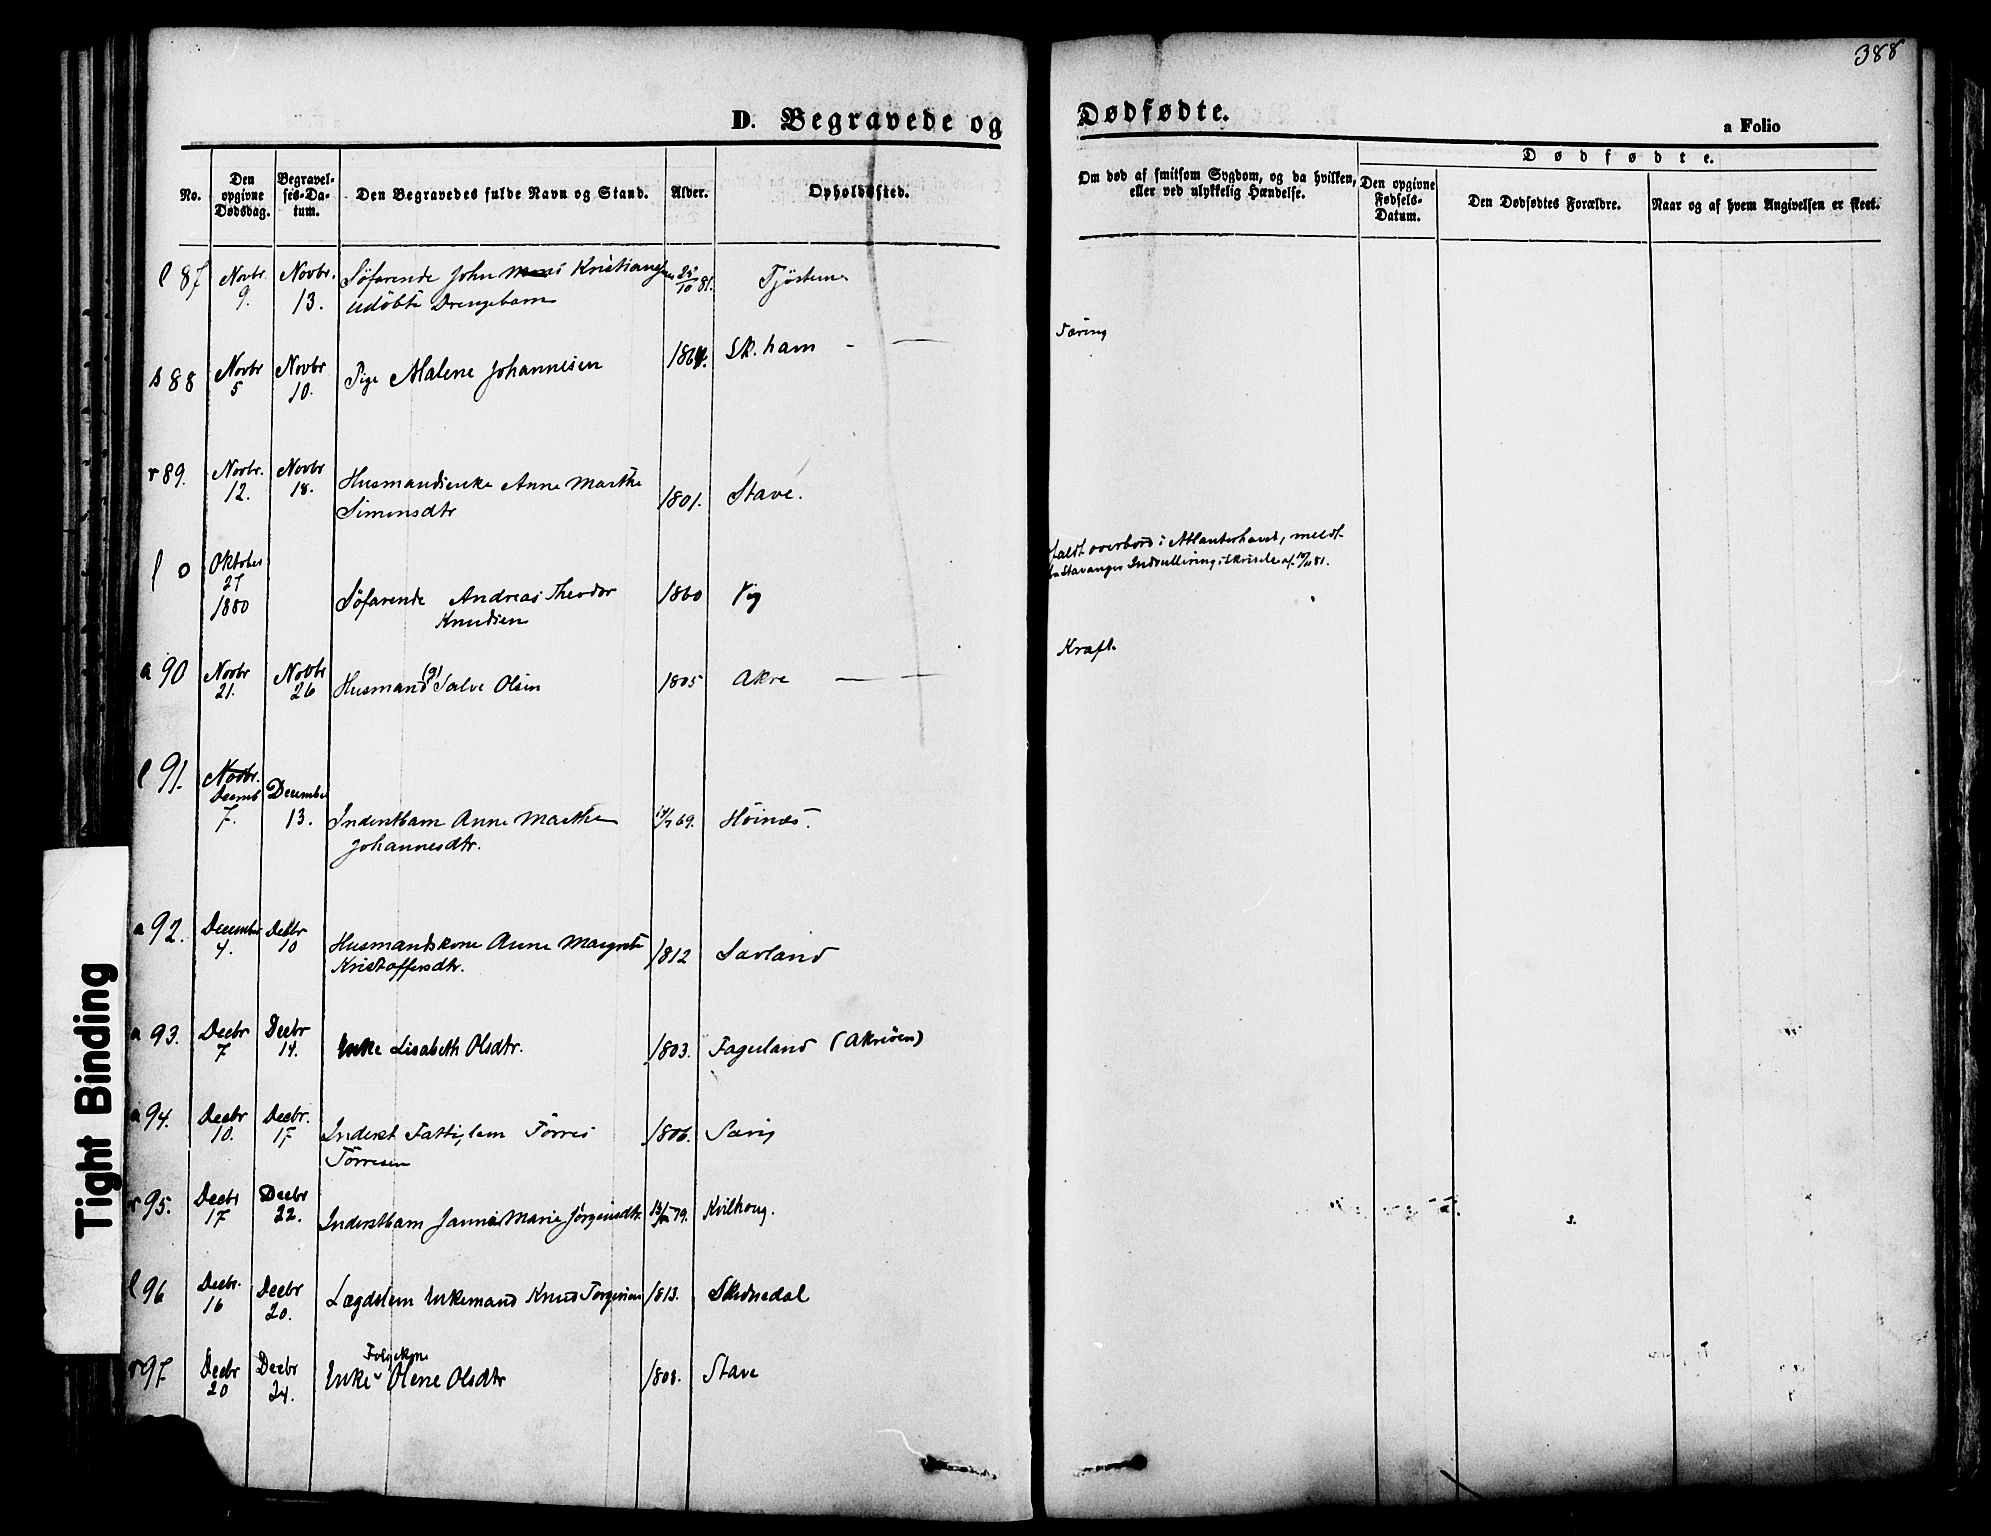 388
D. Begravede og Dødfødte.
a Folio
No.
Den opgivne Dødsdag.
Begravelses-Datum.
Den Begravedes fulde Navn og Stand.
Alder.
Opholdssted.
Om død af smitsom Sygdom, og da hvilken, eller ved ulykkelig Hændelse.
Dødfødte.
Den opgivne Fødsels-Datum.
Den Dødfødtes Forældre.
Naar og af hvem Angivelsen er skeet.
l 87 Novbr. 9. Novbr. 13. Søfarende John Kristiansens 25/10 81. Tjøstem
udøbte Drengebarn
s 88 Novbr 5 Novbr 10. Pige Malene Johannesen 1864. Sk. havn — — Tæring
r 89. Novbr. 12. Novbr 18. Husmandsenke Anne Marthe 1801. Stave.
Simonsdtr
l 0 Oktober 27 1880 Søfarende Andreas Theodor 1860 Vig faldt overbord i Atlanterhavet, meldt
Knudsen fra Stavanger Indrulleringi Skrivelse af
a 90 Novbr 21. Novbr 26 Husmand (g) Salve Olsen 1805 Akre — — Kræft.
l 91. Novbr. Decemb 7. December 13. Inderstbarn Anne Marthe 69. Höinæs.
Johannesdtr.
a 92. December 4. Decbr 10 Husmandskone Anne Margrete 1812 Sævland
Kristoffersdtr.
a 93. Decbr 7 Decbr 14. Enke Lisabeth Olsdtr. 1803. Fagerland (Akreøen)
a 94. Decbr 10. Decbr. 17 Inderst Fattiglem Tørres 1806. Sævig
Tørresen
r 95. Decbr 17 Decbr 22. Inderstbarn Marie Jørgensdtr. 79. Kvilhoug.
l 96 Decbr. 16 Decbr 20. Lægdslem Enkemand Knud Torgersen 1813. Skednedal
r 97 Decbr 20 Decbr 24. Enke Folgekone Olene Olsdtr 1808. Stave
Tight Binding